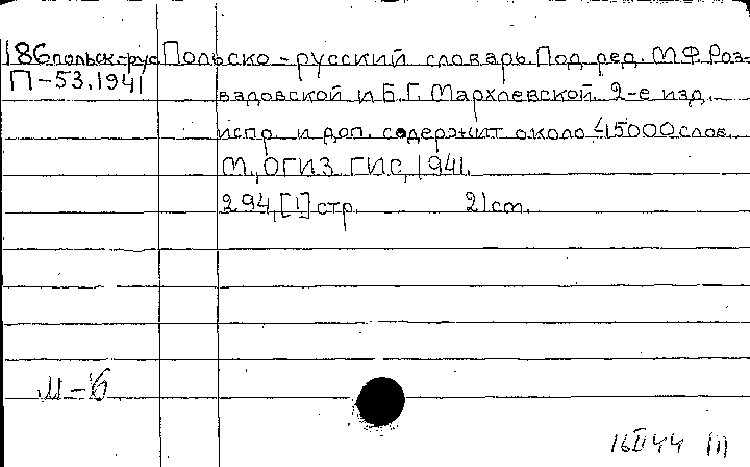 186польск-рус. Польско-русский словарь. Под ред. М.Ф. Роз-
П-53.1941
вадовской и Б.Г. Мархлевской. 2-е изд.
испр. и доп. содержит около 45000 слов.
М., ОГИЗ ГИС, 1941.
294, [1] стр. 21 cm.
И-6
16 II 44 (1)